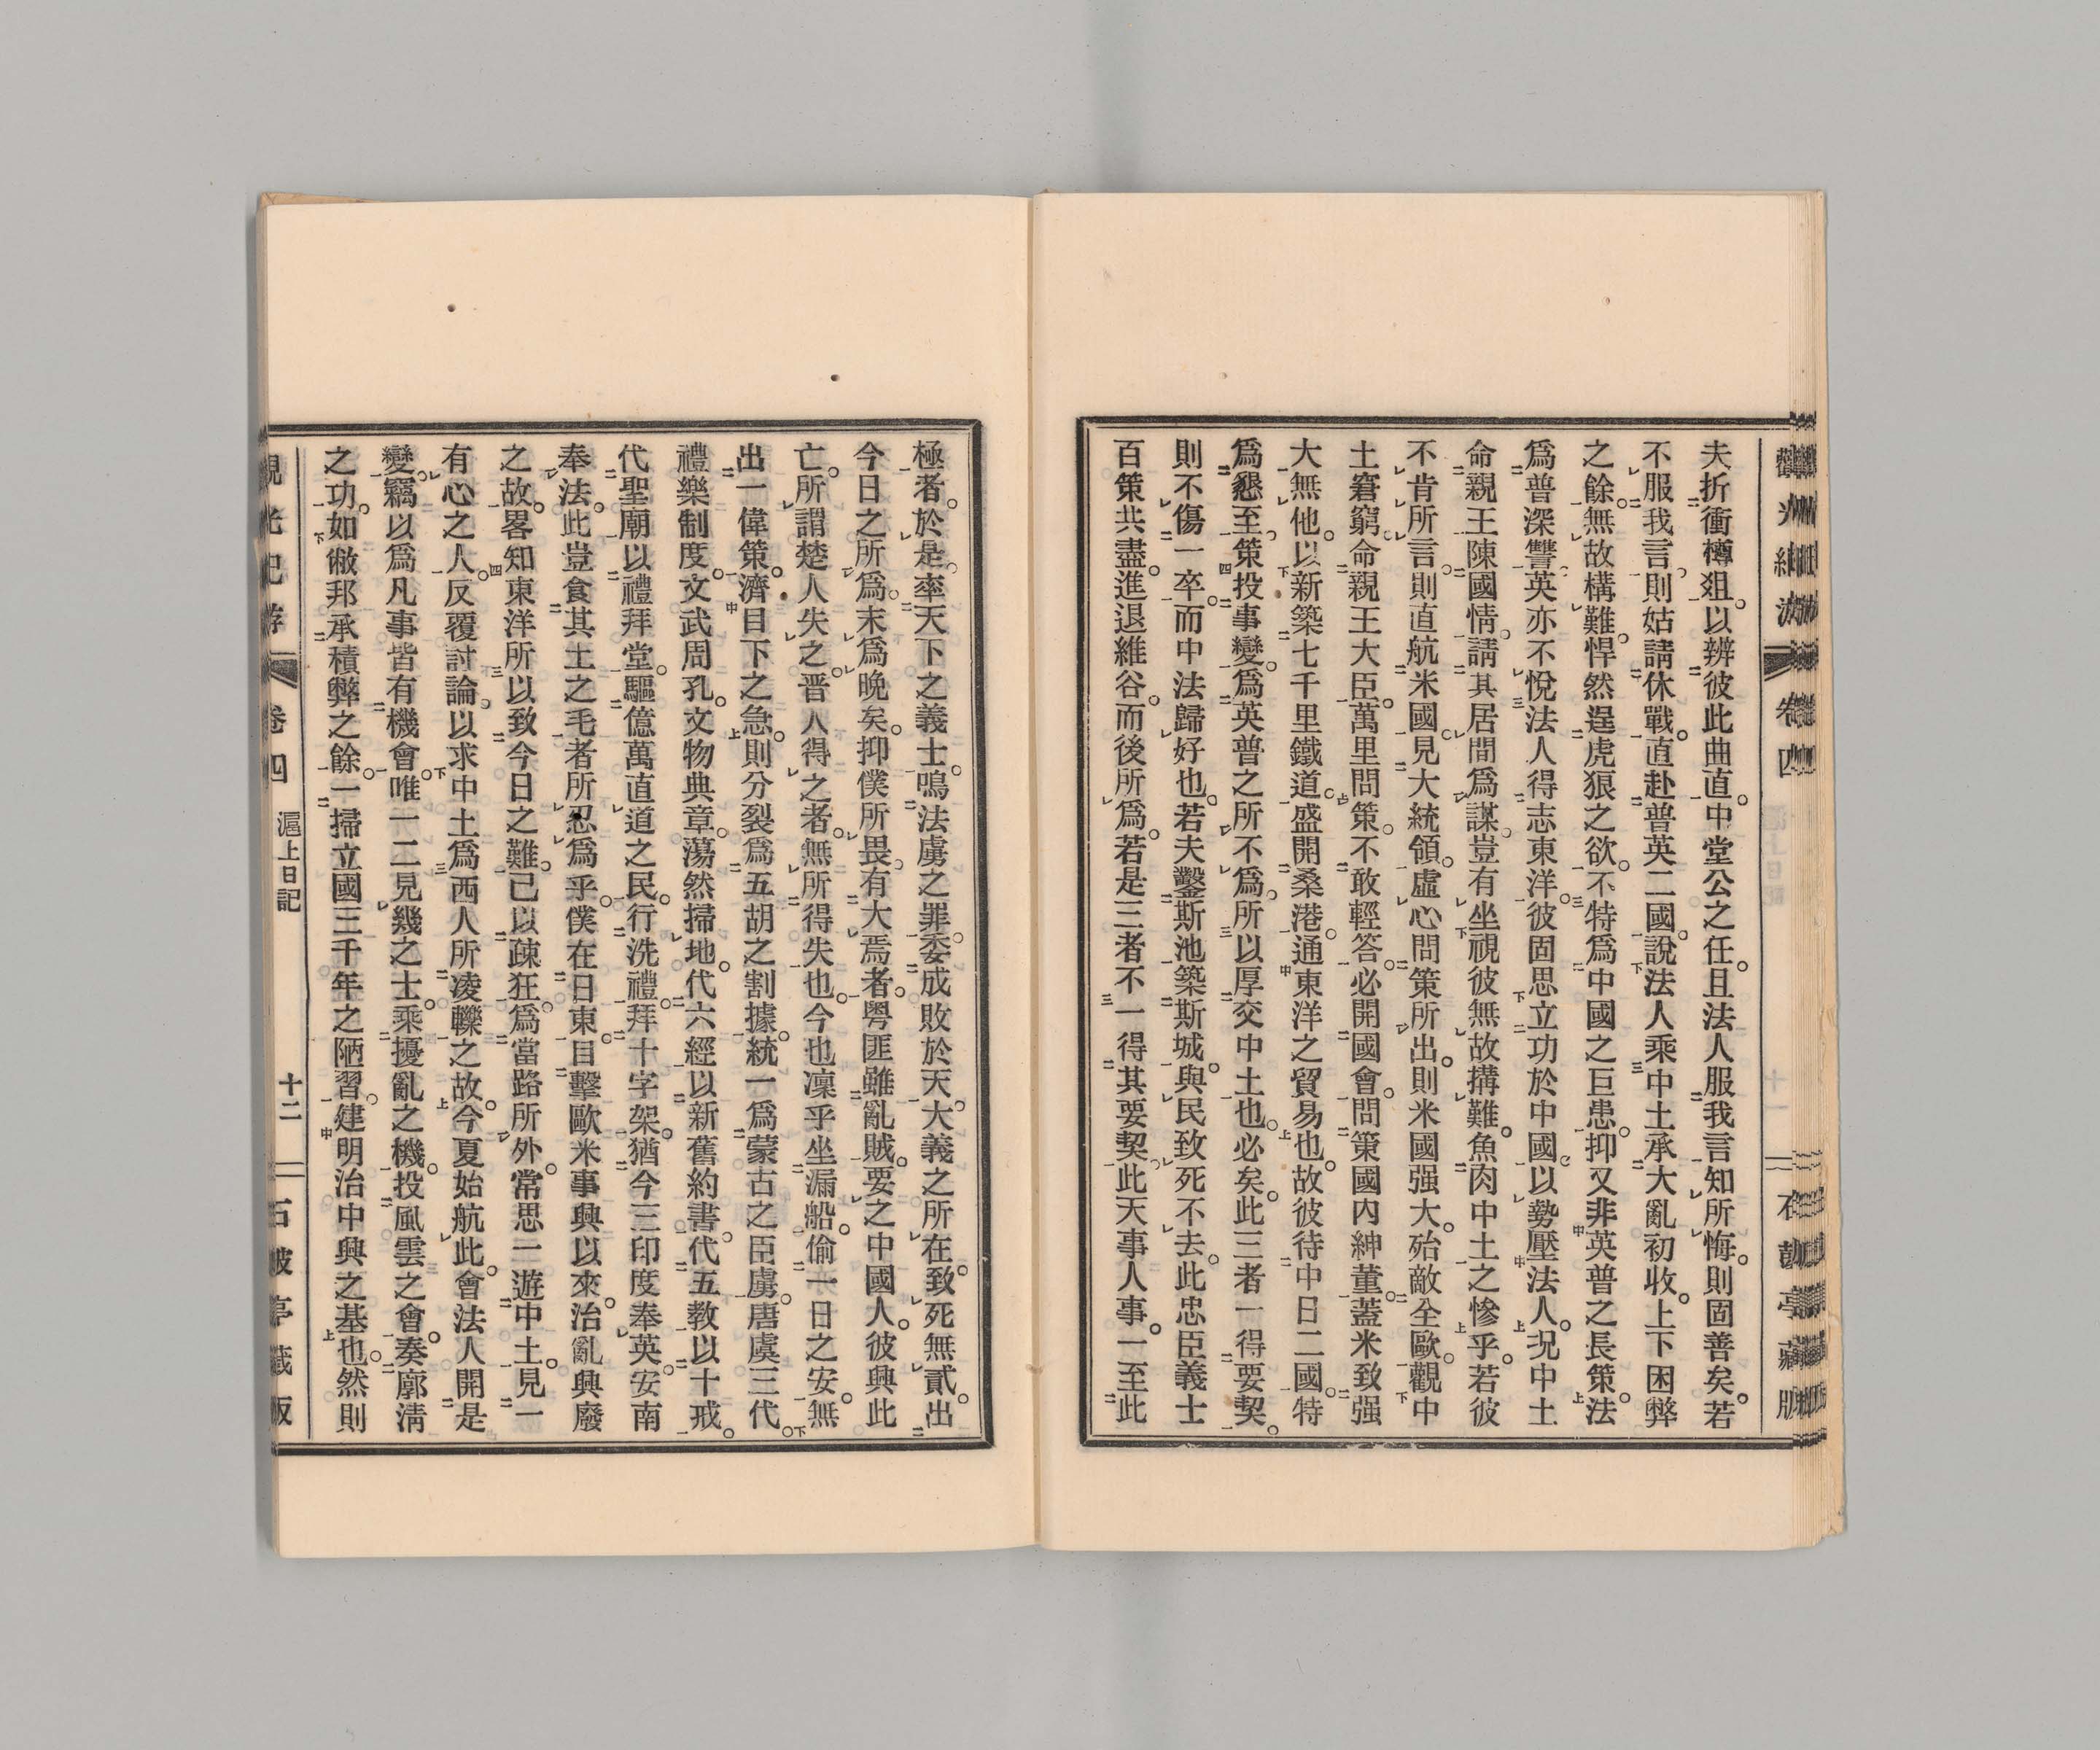 夫折衝樽俎。以辨彼此曲直。中堂公之任。且法人服我言。知所悔。則固善矣。若
不服我言。則姑請休戰。直赴普英二國。說法人乘中土承大亂初收。上下困弊
之餘。無故構難。悍然逞虎狼之欲。不特爲中國之巨患。抑又非英普之長策。法
爲普深讐。英亦不悅法人得志東洋。彼固思立功於中國。以勢壓法人。況中土
命親王陳國情。請其居間爲謀。豈有坐視彼無故搆難。魚肉中土之慘乎。若彼
不肯所言。則直航米國。見大統領。虛心問策所出。則米國强大。殆敵全歐。觀中
土窘窮。命親王大臣。萬里問策。不敢輕答。必開國會。問策國內紳董。蓋米致强
大無他。以新築七千里鐵道。盛開桑港。通東洋之貿易也。故彼待中日二國。特
爲懇至。策投事變。爲英普之所不爲。所以厚交中土也。必矣。此三者一得要契。
則不傷一卒。而中法歸好也。若夫鑿斯池。築斯城。與民致死不去。此忠臣義士
百策共盡。進退維谷。而後所爲。若是三者不一得其要契。此天事人事。一至此
卷四
極者。於是率天下之義士。鳴法虜之罪。委成敗於天。大義之所在。致死無貳。出
今日之所爲。末爲晚矣。抑僕所畏。有大焉者。粤匪雖亂賊。要之中國人。彼興此
亡。所謂楚人失之。晋人得之者。無所得失也。今也凜乎坐漏船。偷一日之安。無
出一偉策。濟目下之急。則分裂爲五胡之割據。統一爲蒙古之臣虜。唐虞三代。
禮樂制度。文武周孔。文物典章。蕩然掃地。代六經以新舊約書。代五教以十戒。
代聖廟以禮拜堂。驅億萬直道之民。行洗禮。拜十字架。猶今三印度奉英。安南
奉法。此豈食其土之毛者所忍爲乎。僕在日東。目擊歐米事興以來。治亂興廢
之故。畧知東洋所以致今日之難。已以疎狂。爲當路所外。常思一遊中土。見一
有心之人。反覆討論。以求中土爲西人所凌轢之故。今夏始航此。會法人開是
變。竊以爲凡事皆有機會。唯一二見幾之士。乘擾亂之機。投風雲之會。奏廓淸
之功。如敝邦承積弊之餘。一掃立國三千年之陋習。建明治中興之基也。然則
觀光紀游 卷四 滬上日記 十二